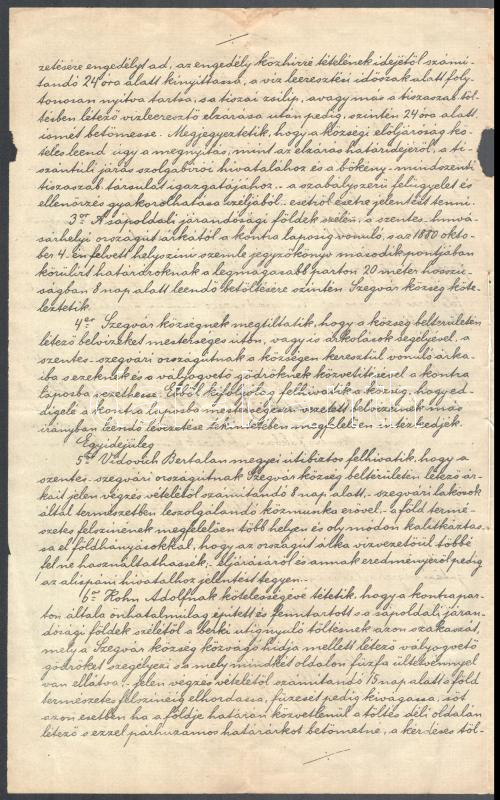 zetésére engedélyt ad, az engedély közhirré tételének idejétől számi-
tandó 24 óra alatt kinyittassa, a viz leeresztési időszak alatt foly-
tonosan nyitva tartsa, s a tiszai zsilip, avagy más a tiszaszab. töl-
tésben létező vizleeresztő elzárása után pedig, szintén 24 óra alatt
ismét betömesse. Megjegyeztetik, hogy a községi elöljáróság kö-
teles leend úgy a megnyitás, mint az elzárás határidejéről, a ti-
szántúli járás szolgabirói hivatalához és a bökény-mindszenti
tiszaszab. társulat igazgatójához - a szabályszerű felügyelet és
ellenőrzés gyakorolhatása czéljából - esetről esetre jelentést tenni.
3or A sápoldali járandósági földek szélén, a szentes-hmvá-
sárhelyi országút árkától a kontra laposig vonuló, s az 1880 októ-
ber 4-én felvett helyszini szemle jegyzőkönyv második pontjában
körülirt határároknak a legmagasabb parton 20 méter hosszú-
ságban 8 nap alatt leendő betöltésére szintén Szegvár község köte-
leztetik.
4er Szegvár községnek megtiltatik, hogy a község belterületén
létező belvizeket mesterséges úton, vagyis árkolások segélyével, a
szentes-szegvári országútnak a községen keresztül vonuló árka-
iba s ezeknek és a vályogvető gödröknek közvetitésével a kontra
laposba vezethesse. Ebből kifolyólag felhivatik a község, hogy ed-
digelé a kontra laposba mesterségesen vezetett belvizeinek más
irányban leendő levezetése tekintetében megfelelően intézkedjék.
Egyidejüleg
5ör Vidovich Bertalan megyei útibiztos felhivatik, hogy a
szentes-szegvári országútnak Szegvár község belterületén létező ár-
kait jelen végzés vételétől számitandó 8 nap alatt, - szegvári lakosok
által természetben leszolgálandó közmunka erővel - a föld termé-
szetes felszinének megfelelően több helyen és oly módon kalitkáztas-
sa el földhányásokkal, hogy az országút árka vizvezetőül többé
fel ne használtathassék, - eljárásáról és annak eredményéről pedig
az alispáni hivatalhoz jelentést tegyen.
6or Kohn Adolfnak kötelességévé tétetik, hogy a kontra par-
ton általa önhatalmúlag épitett és fenntartott s a sápoldali járan-
dósági földek szélétől a berki útig nyúló töltésnek azon szakaszát,
mely a Szegvár község közvágó hidja mellett létező vályogvető
gödröket szegélyezi s a mely mindkét oldalon fűzfa ültetvénnyel
van ellátva - jelen végzés vételétől számitandó 15 nap alatt a föld
természetes felszinéig elhordassa, fűzesét pedig kivágassa, sőt
azon esetben ha a földje határán közvetlenül a töltés déli oldalán
létező s ezzel párhuzamos határárkot betömetné, a kérdéses töl-